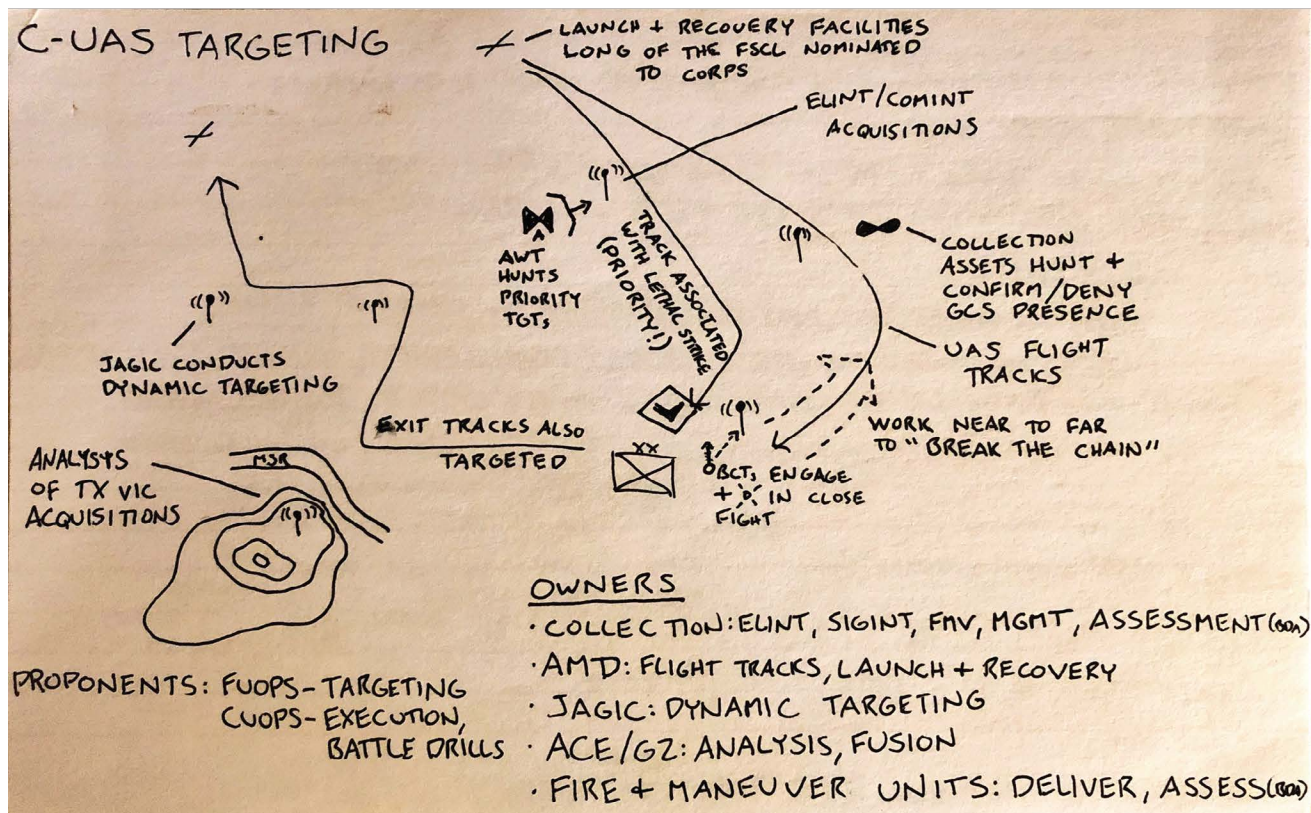 C-UAS TARGETING
LAUNCH + RECOVERY FACILITIES
LONG OF THE FSCL NOMINATED
TO CORPS
ELINT/COMINT
ACQUISITIONS
AWT
HUNTS
PRIORITY
TGTs
TRACK ASSOCIATED
WITH LETHAL STRIKE
(PRIORITY!)
COLLECTION
ASSETS HUNT +
CONFIRM/DENY
GCS PRESENCE
UAS FLIGHT
TRACKS
JAGIC CONDUCTS
DYNAMIC TARGETING
EXIT TRACKS ALSO
TARGETED
WORK NEAR TO FAR
TO "BREAK THE CHAIN"
XX
BCTs ENGAGE
+ IN CLOSE
FIGHT
ANALYSYS
OF TX VIC
ACQUISITIONS
MSR
OWNERS
· COLLECTION: ELINT, SIGINT, FMV, MGMT, ASSESSMENT (BDA)
· AMD: FLIGHT TRACKS, LAUNCH + RECOVERY
· JAGIC: DYNAMIC TARGETING
· ACE/G2: ANALYSIS, FUSION
· FIRE + MANEUVER UNITS: DELIVER, ASSESS (BDA)
PROPONENTS: FUOPS-TARGETING
CUOPS-EXECUTION,
BATTLE DRILLS